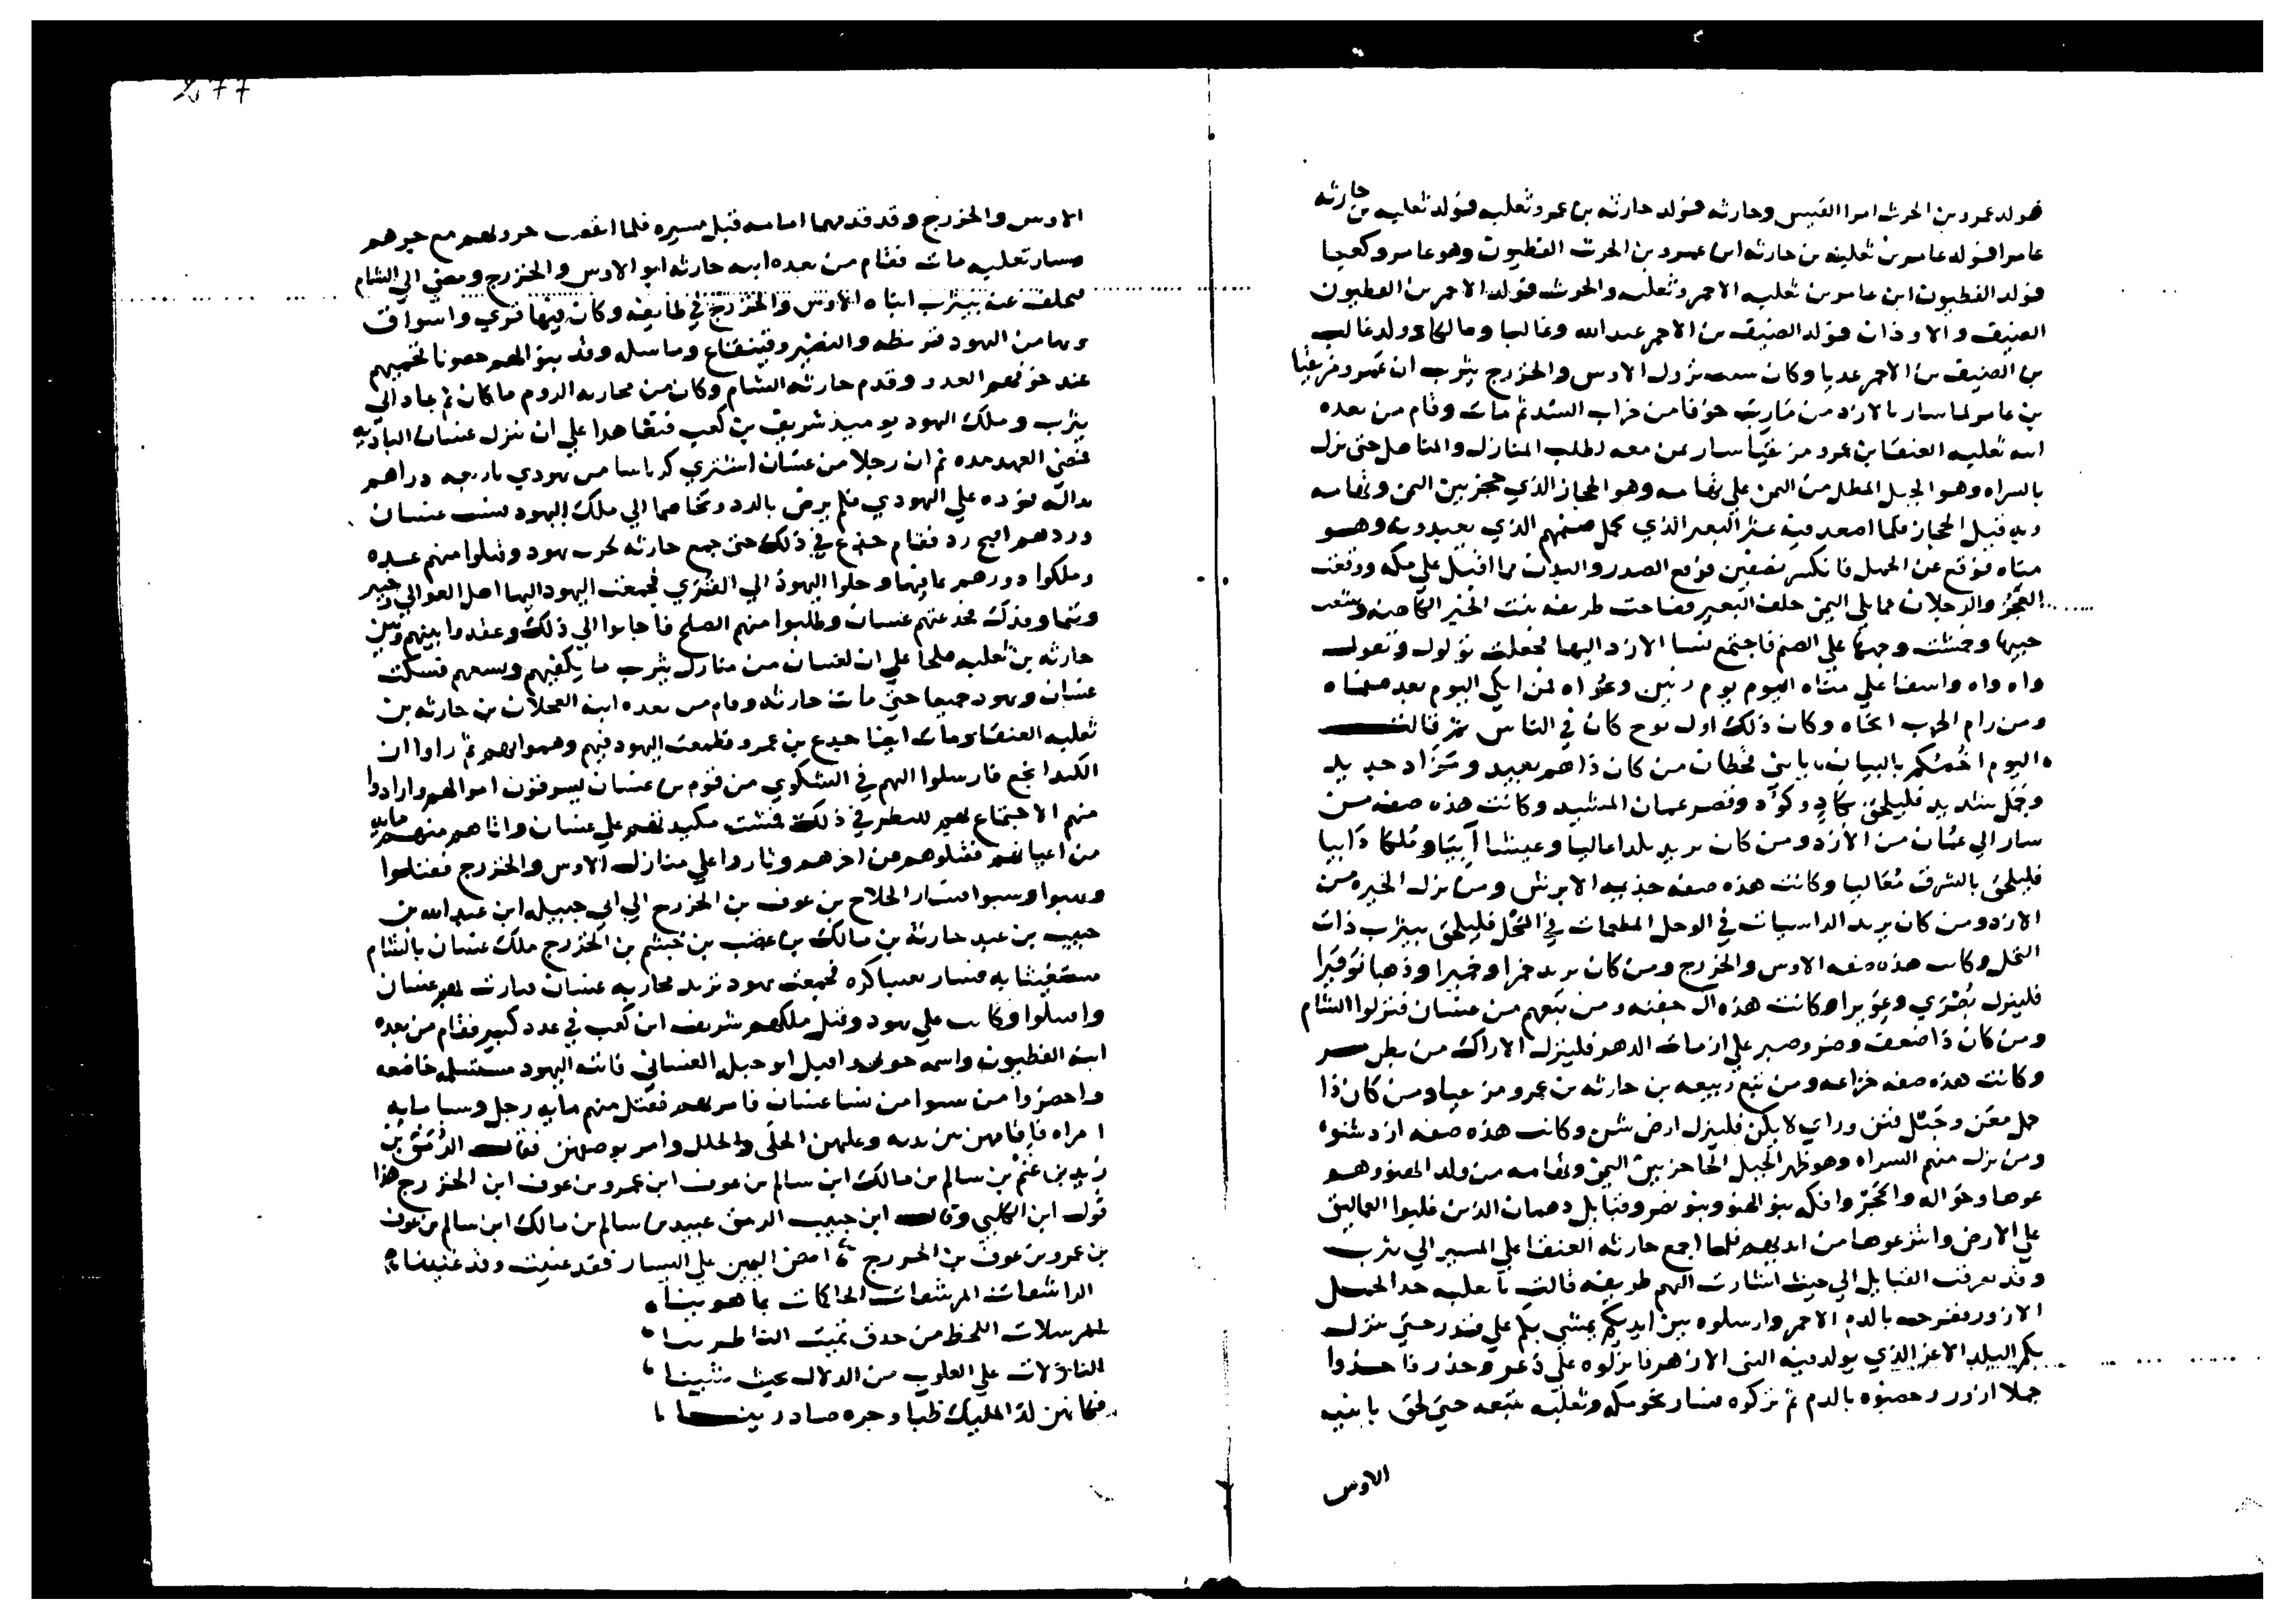 فولد عمرو بن الحرث امرا القيس وحارثه فولد حارثه بن عمرو ثعلبه فولد ثعلبه بن حارثه
عامرا فولد عامر بن ثعلبه بن حارثه ابن عمرو بن الحرث الفطيون وهو عامر وكعبا
فولد الفطيون ابن عامر بن ثعلبه الاحمر وثعلبه والحرث فولد الاحمر بن الفطيون
الصنيف والاوذان فولد الصنيف بن الاحمر عبد الله وغالبا ومالكا وولد غالب
بن الصنيف بن الاحمر عديا وكان سبب نزول الاوس والخزرج يثرب ان عمرو مزيقيا
بن عامر لما سار بالازد من مارب خوفا من خراب السد ثم مات وقام من بعده
ابنه ثعلبه العنقا بن عمرو مزيقيا سار بمن معه لطلب المنازل والمناهل حتى نزل
بالسراه وهو الجبل المطل من اليمن علي تهامه وهو الحجاز الذي حجز بين اليمن وتهامه
فيه قبل الحجاز فلما اصعد فيه عثر البعير الذي يحمل صنمهم الذي يعبدونه وهو
مناه فوقع عن الجمل فانكسر نصفين فوقع الصدر واليدان مما اقبل علي مكه ووقعت
العجز والرجلان مما يلي اليمن خلف البعير فصاحت طريفه بنت الخير الكاهنه وشقت
جيبها وخمشت وجهها علي الصنم فاجتمع نسا الازد اليها فجعلت تولول وتقول
واه واه واسفا علي مناه اليوم يوم رنين وعواه لمن ابكي اليوم بعد مناه
ومن رام الحرب اتخاه وكان ذلك اول نوح كان في الناس ثم قالت
اليوم اخصكم بالبيان يا بني قحطان من كان ذا هم بعيد ومزاد حديد
وجمل شديد فليلحق بكاد وكواد وقصر عمان المشيد وكانت هذه صفه من
سار الي عمان من الازد ومن كان يريد بلدا عاليا وعيشا آتيا وملكا دابيا
فليلحق بالشرق مغاليا وكانت هذه صفه جذيمه الابرش ومن نزل الحيره من
الازد ومن كان يريد الراسيات في الوحل المطعمات في المحل فليلحق بيثرب ذات
النخل وكانت هذه صفه الاوس والخزرج ومن كان يريد خمرا وخميرا وذهبا توقيرا
فلينزل بصري وعويرا وكانت هذه ال جفنه ومن تبعهم من غسان فنزلوا الشام
ومن كان ذا ضعف وضر وصبر علي ازمات الدهر فلينزل الاراك من بطن مر
وكانت هذه صفه خزاعه ومن تبع ربيعه بن حارثه بن عمرو مزيقيا ومن كان ذا
جمل معن وحبل فنن وراي لا يكن فلينزل ارض شن وكانت هذه صفه ازد شنوه
ومن نزل منهم السراه وهو ظهر الجبل الحاجز بين اليمن وتهامه من ولد الهنو وهو
عوها وحواله والحجر وافكه بنو الهنو وبنو نصر وقبايل دهمان الذين غلبوا العماليق
علي الارض وانتزعوها من ايديهم فلما اجمع حارثه العنقا علي المسير الي يثرب
وقد تفرقت القبايل الي حيث اشارت اليهم طريفه قالت يا ثعلبه خذ الجمل
الازور فضرجه بالدم الاحمر وارسلوه بين ايديكم يمشي بكم علي قدر حتى ينزل
بكم البلد الاعز الذي يولد فيه النبي الازهر فانزلوه علي ذعر وحذر فاخذوا
جملا ازور وخضبوه بالدم ثم تركوه فسار نحو مكه وثعلبه يتبعه حتى لحق بابنيه
الاوس
277
الاوس والخزرج وقد قدمهما امامه قبل مسيره فلما
فسار ثعلبه مات فقام من بعده ابنه حارثه ابو الاوس والخزرج ومضي الي الشام
فتخلف عنه بيثرب ابناه الاوس والخزرج في طايفه وكان فيها قري واسواق
وبها من اليهود قريظه والنضير وقينقاع وماسله وقد بنوا لهم حصونا تحميهم
عند خوفهم العدو وقدم حارثه الشام وكان من محاربه الروم ما كان ثم عاد الي
يثرب وملك اليهود يوميذ شريف بن كعب فتعاهدا علي ان تنزل غسان الباديه
فمضي العهد مده ثم ان رجلا من غسان اشتري كرباسا من يهودي باربعه دراهم
بداله فرده علي اليهودي فلم يرض بالرد وتخاصما الي ملك اليهود
وردهم اقبح رد فقام جذع في ذلك حتى جمع حارثه لحرب يهود وقتلوا منهم عده
وملكوا دورهم بما فيها وجلوا اليهود الي القري فجمعت اليهود اليها اهل العوالي وخيبر
وتيما وفدك فخدعتهم غسان وطلبوا منهم الصلح فاجابوا الي ذلك وعقدوا بينهم وبين
حارثه بن ثعلبه صلحا علي ان لغسان من منازل يثرب ما يكفيهم ويسعهم فسكنت
غسان ويهود جميعا حتى مات حارثه وقام من بعده ابنه العجلان بن حارثه بن
ثعلبه العنقا ومات ايضا جذع بن عمرو فطمعت اليهود فيهم وهموا بهم ثم راوا ان
الكيد انجع فارسلوا اليهم في الشكوي من قوم من غسان يسرقون اموالهم وارادوا
منهم الاجتماع بهم للنظر في ذلك فمشت مكيدتهم علي غسان واتاهم منهم مايه
من اعيانهم فقتلوهم عن اخرهم وثاروا علي منازل الاوس والخزرج فقتلوا
ونهبوا وسبوا فسار الجلاح بن عوف بن الخزرج الي ابي جبيله ابن عبد الله بن
حبيب بن عبد حارثه بن مالك بن غضب بن جشم بن الخزرج ملك غسان بالشام
مستغيثا به فسار بعساكره فجمعت يهود تريد محاربه غسان فسارت لهم غسان
واقتتلوا وكانت علي يهود وقتل ملكهم شريف ابن كعب في عدد كبير فقام من بعده
ابنه الفطيون واسمه ابو جبيله الغساني فاتته اليهود مستسلمه خاضعه
واحضروا من سبوا من نسا غسان فامر بهم فقتل منهم مايه رجل وسبا مايه
امراه فاقامهن بين يديه وعليهن الحلي والحلل وامر بوصلهن فقال الرمق بن
زيد بن غنم بن سالم بن مالك ابن سالم بن عوف ابن عمرو بن عوف ابن الخزرج هذا
قول ابن الكلبي وقال ابن حبيب الرمق عبيد بن سالم بن مالك ابن سالم بن عوف
بن عمرو بن عوف بن الخزرج امض اليمين علي اليسار فقد عنيت وقد عنينا
الراشقات المرشقات الحاكات بما هوينا
المرسلات اللحظ من حدق تميت الناظرينا
النازلات علي القلوب من الدلال بحيث شينا
فكانهن لدا المليك ظبا وجره صادرينا